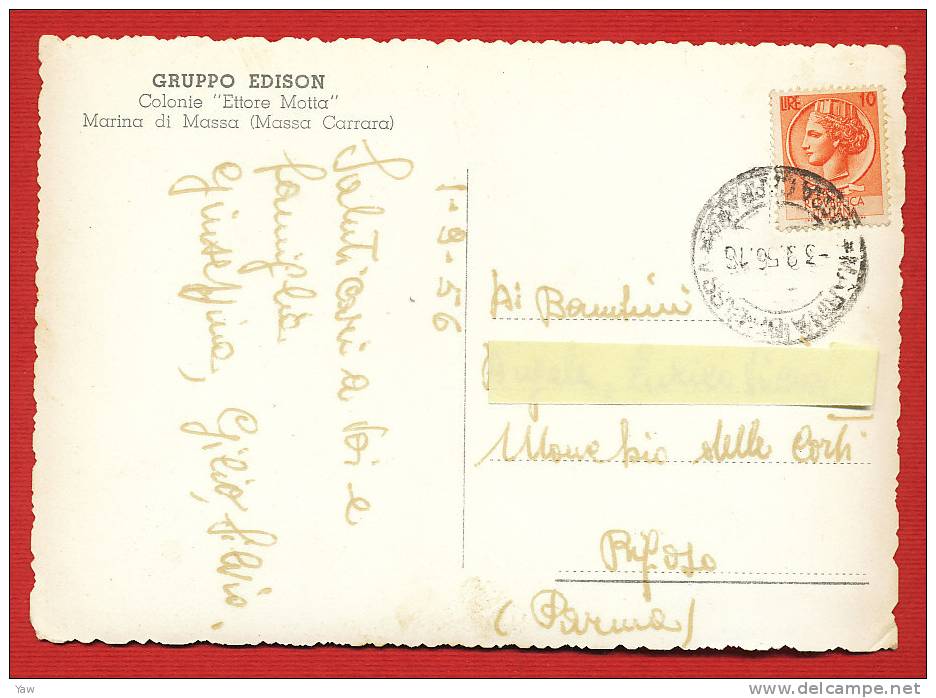 GRUPPO EDISON
Colonie "Ettore Motta"
Marina di Massa (Massa Carrara)
1-9-56
Saluti cari a voi e
famiglia
Giuseppina, Gilio, Silvio.
LIRE 10
-3.9.56.18
Ai Bambini
Monchio delle Corti
Rigoso
(Parma)
Yaw
www.delcampe.net